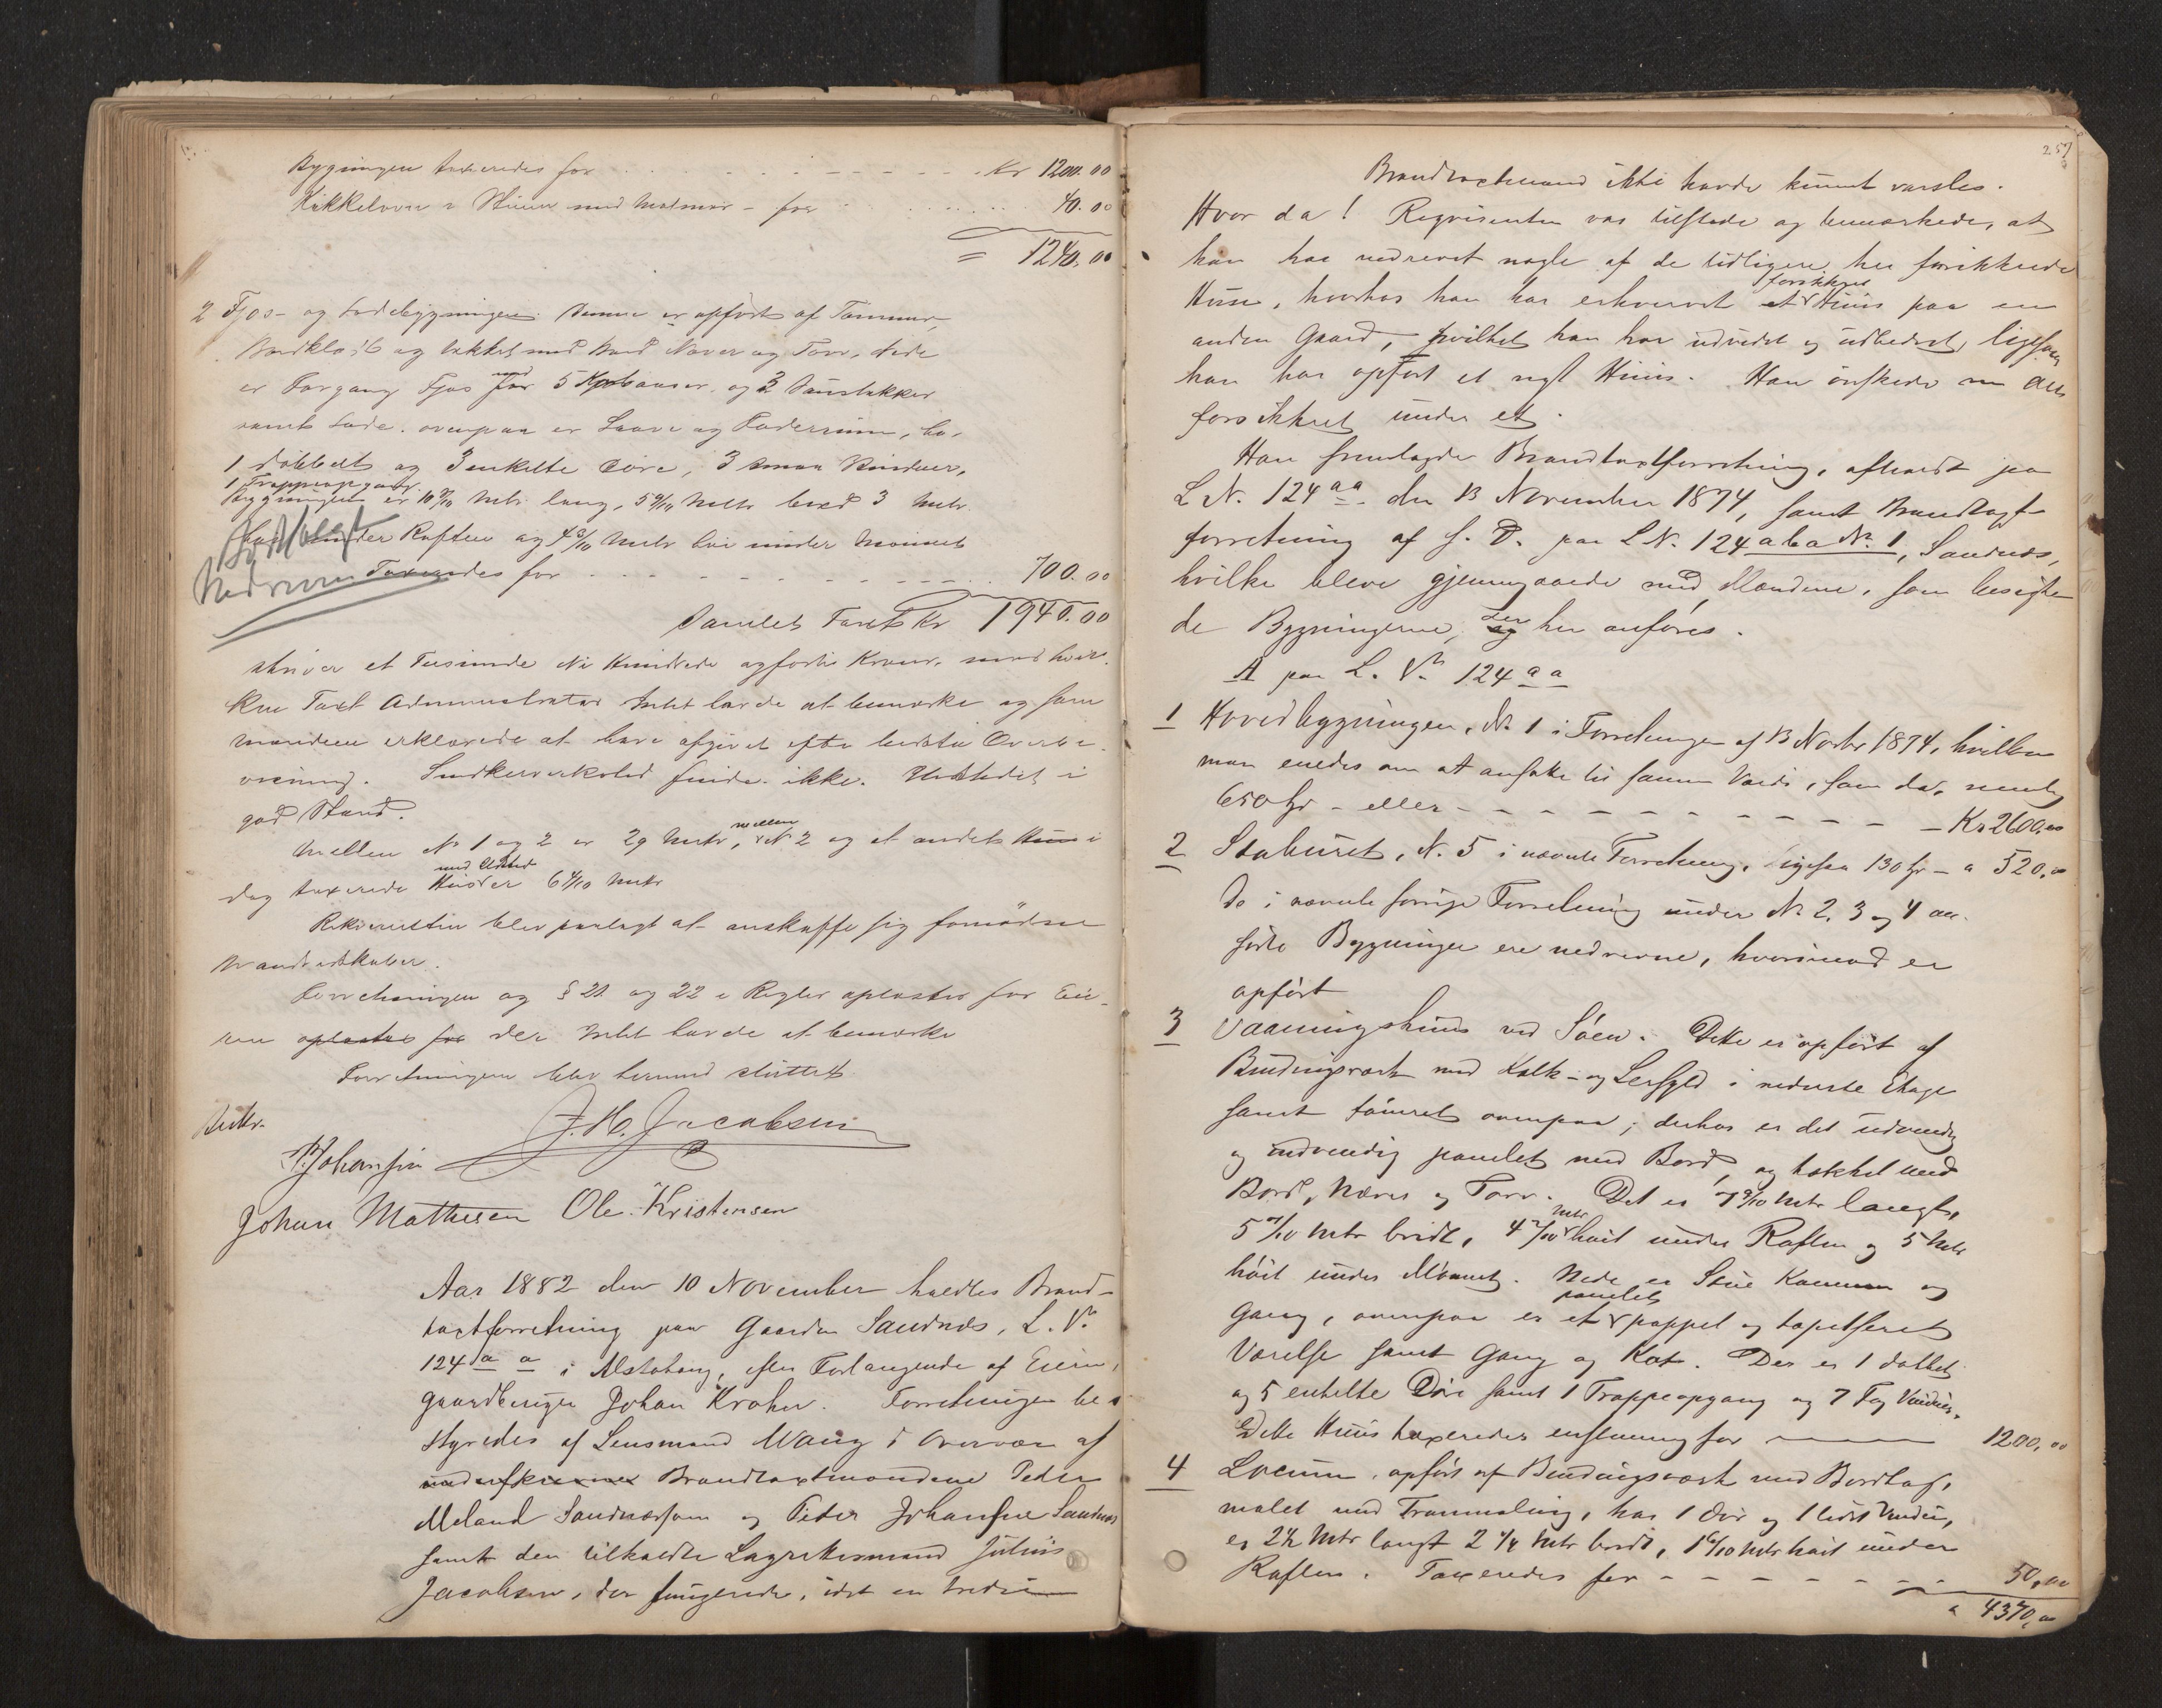 Bygningen taxeredes for - - - - - Kr 1200.00
Kakkelovn i Stuen med Matmor - for - - - 40.00
= 1240.00
2 Fjøs- og Ladebygningen. Denne er opført af Tømmer,
Bordklædt og tækket med Bord Næver og Torv, nede
er Forgang Fjøs med for 5 Kobaaser og 3 Saustakker
samt Lade. ovenpaa er Laave og Foderrum, har
1 dobbelt og 3 enkelte Døre, 3 smaa Vinduer,
1 Trappeopgang.
Bygningen er 10 7/10 Metr lang, 5 9/10 Metr bred 3 Metr
høi under Raften og 4 3/10 Metr høi under Mønnet
Taxeredes for - - - - - 700.00
Bortsolgt
Nedreven
Samlet Taxt Kr 1940.00
skriver et Tusinde Ni Hundrede og forti Kroner, mod hvil-
ken Taxt Administrator Intet havde at bemærke og som
Mændene erklærede at have afgivet efter bedste Overbe-
visning. Snedkerverksted findes ikke. Ildstedet i
god Stand.
Mellem No 1 og 2 er 29 Metr, mellem No 2 og et andet Huus i
dag taxerede Huus med Ildsted er 6 4/10 Metr
Rekvirenten blev paalagt at anskaffe sig fornødne
Brandredskaber.
Forretningen og § 21 og 22 i Regler oplæstes for Eie-
ren oplæstes for der Intet havde at bemærke
Forretningen blev hermed sluttet.
J. H. Jacobsen
P. Johansen
Johan Mathesen Ole Kristensen
Aar 1882 den 10 November holdtes Brand-
taxtforretning paa Gaarden Sandnæs, L. No
124 a a i Alstahoug, efter Forlangende af Eieren,
Gaardbruger Johan Krohn. Forretningen be-
styredes af Lensmand Wang i Overvær af
underskrevne Brandtaxtmændene Peder
Meland Sandnæsøen og Peter Johansen Sandnæs
samt den tilkaldte Lagrettesmand Julius
Jacobsen, der fungerede, idet en tredie
257
Brandtaxtmand ikke havde kunnet varsles.
Hvor da! Reqvirenten var tilstede og bemærkede, at
han har nedrevet nogle af de tidligere her forsikkrede
Huse, hvorhos han har erhvervet et forsikkret Huus paa en
anden Gaard, hvilket han har udvidet og udbedret, ligesom
han har opført et nyt Huus. Han ønskede nu Alt
forsikkret under et.
Han fremlagde Brandtaxtforretning, afholdt paa
L No. 124 aa den 13 November 1874, samt Brandtaxt-
forretning af s. D. paa L No. 124 aba No. 1, Sandnæs,
hvilke bleve gjennemgaaede med Mændene, som besigte-
de Bygningerne, og der her anføres.
A paa L. No 124 a a
1 Hovedbygningen, No 1 i Forretningen af 13 Novbr 1874, hvilken
man enedes om at ansætte til samme Værdi, som da, nemlig
650 Spd - eller - - - - - Kr 2600.00
2 Staburet, No. 5 i nævnte Forretning, ligesaa 130 Spd - " 520.00
De i nævnte forrige Forretning under No 2, 3 og 4 an-
førte Bygninger ere nedrevne, hvorimod er
opført
3 Vaaningshuus ved Søen. Dette er opført af
Bindingsværk med Kalk- og Lerfyld i nederste Etage
samt tømret ovenpaa; derhos er det udvendig
og indvendig panelet med Bord, og tækket med
Bord, Næver og Torv. Det er 7 9/10 Metr langt,
5 7/10 Metr bredt, 4 7/10 Metr høit under Raften og 5 Metr
høit under Mønnet. Nede er Stue Kammer og
Gang, ovenpaa er et panelet pappet og tapetseret
Værelse samt Gang og Kot. Der er 1 dobbelt
og 5 enkelte Døre samt 1 Trappeopgang og 7 Fag Vinduer.
Dette Huus taxeredes enstemmig for - - 1200.00
4 Locum, opført af Bindingsværk med Bordtag,
malet med Tranmaling, har 1 Dør og 1 lidet Vindu,
er 2 1/2 Metr langt 2 1/4 Metr bredt, 1 6/10 Metr høit under
Raften. Taxeredes for - - - - - 50.00
" 4370.00